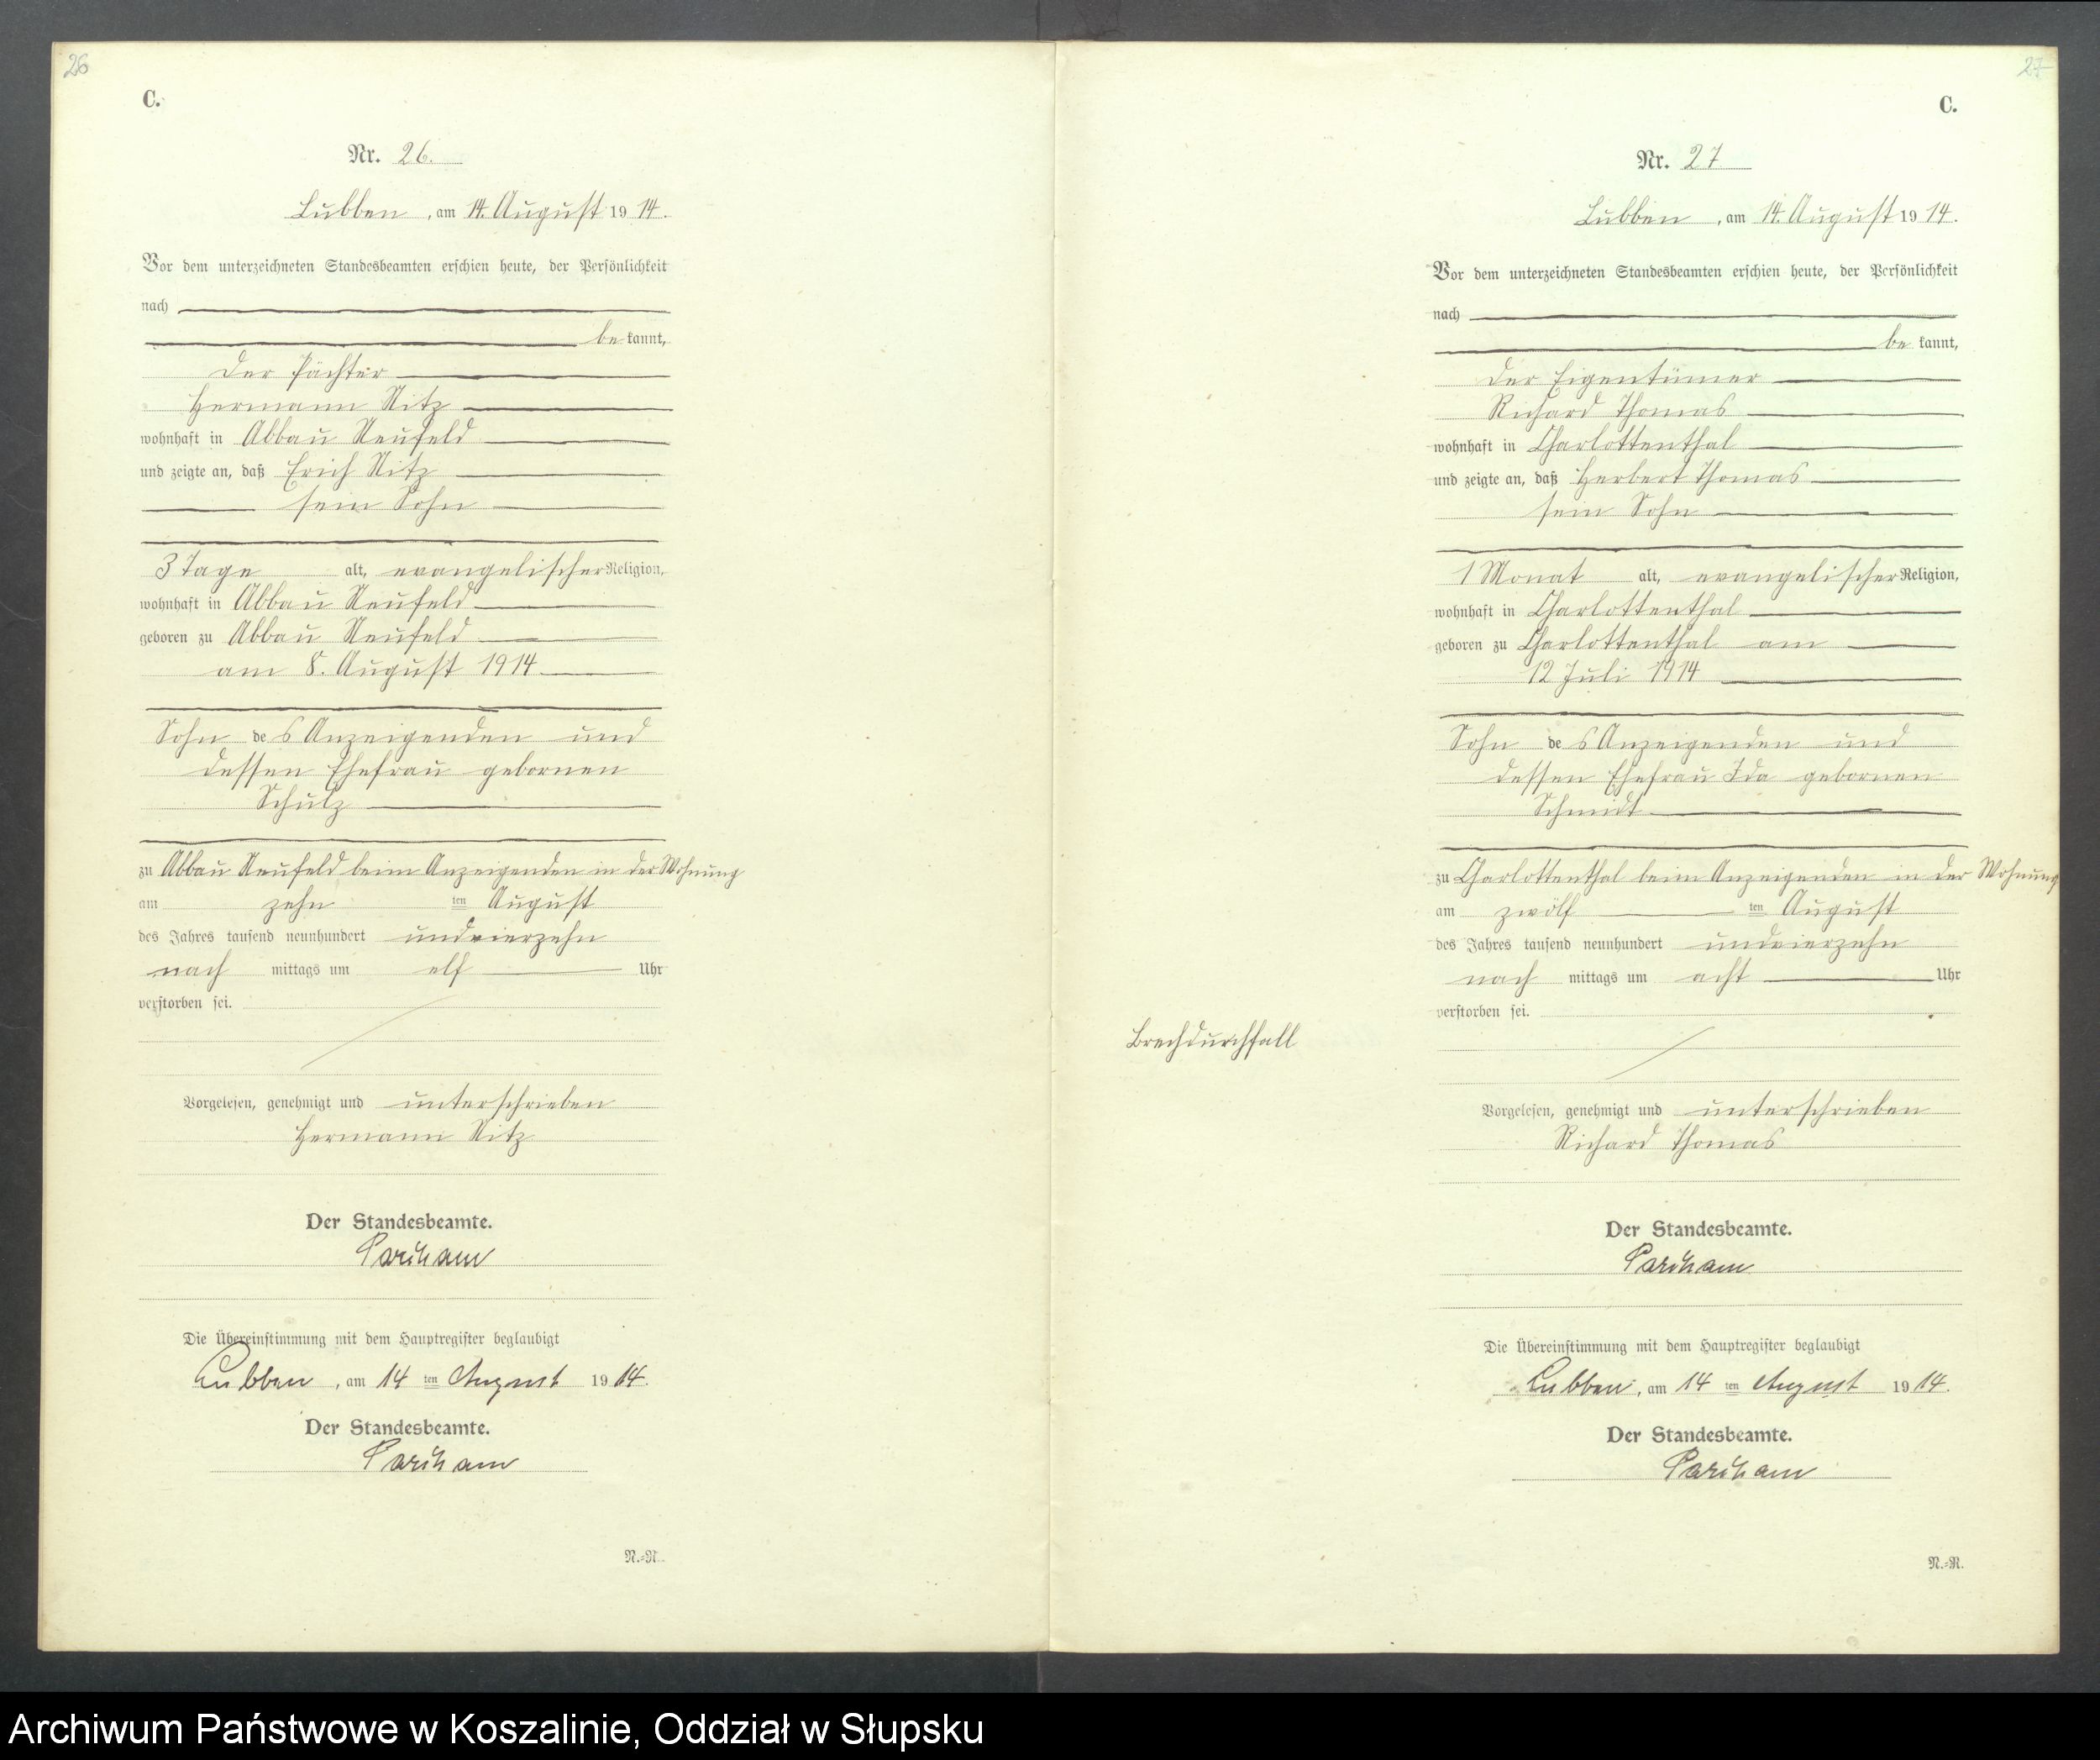 26
C.
Nr. 26.
Lubben, am 14. August 1914.
Vor dem unterzeichneten Standesbeamten erschien heute, der Persönlichkeit
nach
be kannt,
der Pächter
Hermann Nitz
wohnhaft in Abbau Neufeld
und zeigte an, daß Erich Nitz
sein Sohn
3 Tage alt, evangelischer Religion,
wohnhaft in Abbau Neufeld
geboren zu Abbau Neufeld
am 8. August 1914
Sohn des Anzeigenden und
dessen Ehefrau gebornen
Schulz
zu Abbau Neufeld beim Anzeigenden in der Wohnung
am zehn ten August
des Jahres tausend neunhundert undvierzehn
nach mittags um elf Uhr
verstorben sei.
Vorgelesen, genehmigt und unterschrieben
Hermann Nitz
Der Standesbeamte.
Die Übereinstimmung mit dem Hauptregister beglaubigt
Lubben, am 14 ten August 1914.
Der Standesbeamte.
N.=N.
27
C.
Nr. 27
Lubben, am 14. August 1914.
Vor dem unterzeichneten Standesbeamten erschien heute, der Persönlichkeit
nach
be kannt,
der Eigentümer
Richard Thomas
wohnhaft in Charlottenthal
und zeigte an, daß Herbert Thomas
sein Sohn
1 Monat alt, evangelischer Religion,
wohnhaft in Charlottenthal
geboren zu Charlottenthal am
12 Juli 1914
Sohn des Anzeigenden und
dessen Ehefrau Ida gebornen
Schmidt
zu Charlottenthal beim Anzeigenden in der Wohnung
am zwölf ten August
des Jahres tausend neunhundert undvierzehn
nach mittags um acht Uhr
verstorben sei.
Brechdurchfall
Vorgelesen, genehmigt und unterschrieben
Richard Thomas
Der Standesbeamte.
Die Übereinstimmung mit dem Hauptregister beglaubigt
Lubben, am 14 ten August 1914.
Der Standesbeamte.
N.=N.
Archiwum Państwowe w Koszalinie, Oddział w Słupsku